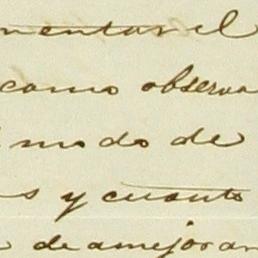 mentar el
como observa
modo de
s y cuanto
de amejoran